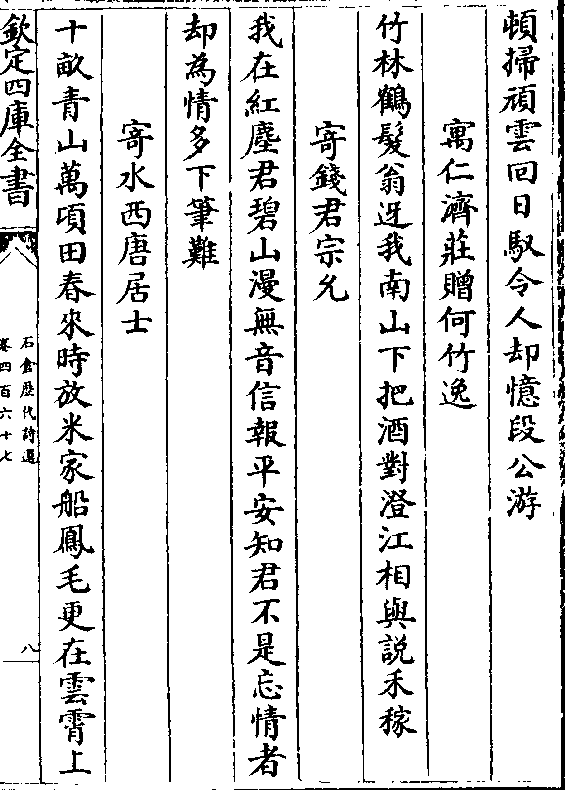 頓掃頑雲回日馭令人却憶段公游
寓仁濟莊贈何竹逸
竹林鶴髮翁迓我南山下把酒對澄江相與説禾稼
寄錢君宗允
我在紅塵君碧山漫無音信報平安知君不是忘情者
却為情多下筆難
寄水西唐居士
十畝青山萬頃田春來時放米家船鳳毛更在雲霄上
欽定四庫全書
石倉歷代詩選
卷四百六十七
八